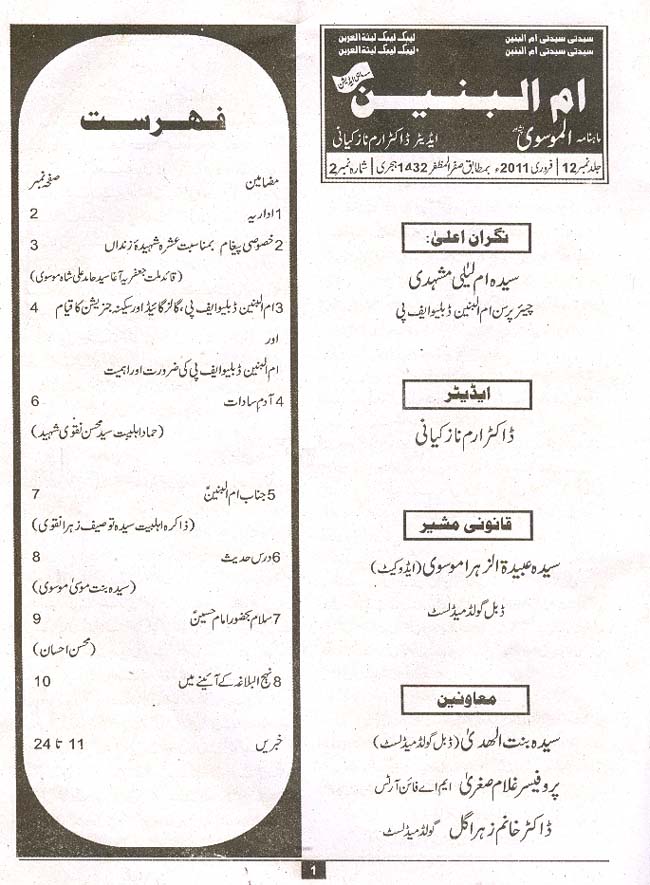 سیدتی سیدتی ام البنین لبیک لبیک لبنة العرین
سیدتی سیدتی ام البنین لبیک لبیک لبنة العرین
ام البنین
ماہنامہ الموسوی ایڈیٹر ڈاکٹر ارم ناز کیانی
جلد نمبر 12 | فروری 2011ء بمطابق صفر المظفر 1432 ہجری | شمارہ نمبر 2
نگران اعلیٰ:
سیدہ ام لیلیٰ مشہدی
چیئرپرسن ام البنین ڈبلیو ایف پی
ایڈیٹر
ڈاکٹر ارم ناز کیانی
قانونی مشیر
سیدہ عبیدۃ الزہرا موسوی (ایڈوکیٹ)
ڈبل گولڈ میڈلسٹ
معاونین
سیدہ بنت الھدیٰ (ڈبل گولڈ میڈلسٹ)
پروفیسر غلام صغریٰ ایم اے فائن آرٹس
ڈاکٹر خانم زہرا گل گولڈ میڈلسٹ
فہرست
مضامین صفحہ نمبر
1 اداریہ 2
2 خصوصی پیغام بمناسبت عشرہ شہیدۂ زنداں 3
(قائد ملت جعفریہ آغا سید حامد علی شاہ موسوی)
3 ام البنین ڈبلیو ایف پی، گرلز گائیڈ اور سکینہ جنریشن کا قیام 4
اور
ام البنین ڈبلیو ایف پی کی ضرورت اور اہمیت
4 آدم سادات 6
(حماد اہلبیت سید محسن نقوی شہید)
5 جناب ام البنینؑ 7
(ذاکرہ اہلبیت سیدہ توصیف زہرا نقوی)
6 درس حدیث 8
(سیدہ بنت موسیٰ موسوی)
7 سلام بحضور امام حسینؑ 9
(محسن احسان)
8 نہج البلاغہ کے آئینے میں 10
خبریں 11 تا 24
1